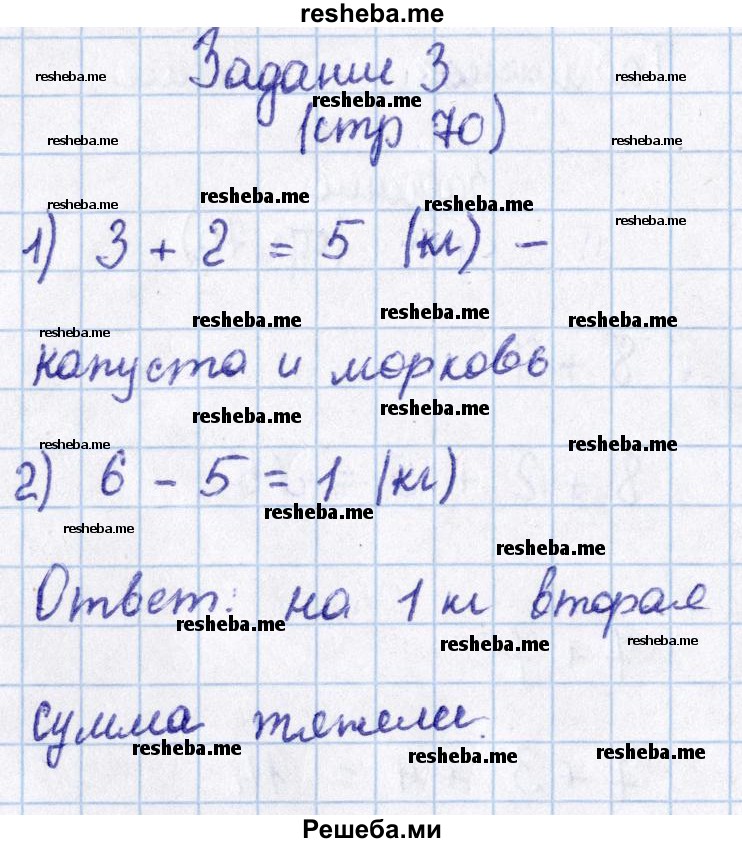 resheba.me
Задание 3
resheba.me resheba.me
resheba.me
(стр 70)
resheba.me resheba.me
resheba.me resheba.me resheba.me
resheba.me
1) 3 + 2 = 5 (кг) –
resheba.me resheba.me resheba.me
resheba.me
капуста и морковь
resheba.me resheba.me
resheba.me resheba.me
2) 6 - 5 = 1 (кг)
resheba.me
resheba.me
resheba.me
Ответ: на 1 кг вторая
resheba.me
resheba.me resheba.me
сумма тяжели.
resheba.me resheba.me resheba.me
Решеба.ми